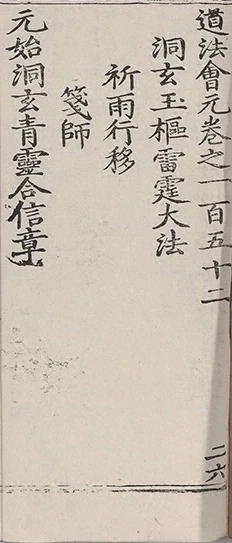 道法會元卷之一百五十二
二六
洞玄玉樞雷霆大法
祈雨行移
箋師
元始洞玄青靈合信章